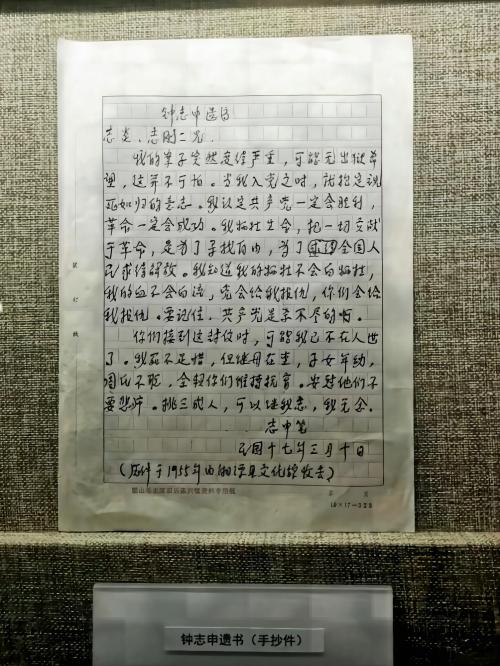 钟志申遗书
志炎、志刚二兄:
我的案子突然变得严重,可能无出狱希
望,这并不可怕。当我入党之时,就抱定视
死如归的意志。我认定共产党一定会胜利,
革命一定会成功。我牺牲生命,把一切交献
于革命,是为了寻找自由,为了全国人
民求得解放。我知道我的牺牲不会白牺牲,
我的血不会白流,党会给我报仇,你们会给
我报仇。要记住,共产党是杀不尽的啊。
你们接到这封信时,可能我已不在人世
了。我死不足惜,但继母在堂,子女年幼,
周氏不聪,全赖你们维持抚育。安慰他们不
要悲伤。桃三成人,可以继我志,我无念。
志申笔
民国十七年三月十日
(原件于1955年由湘潭县文化馆收去)
韶山毛主席旧居陈列馆资料专用纸
第 页
18×17=323
装订线
钟志申遗书(手抄件)